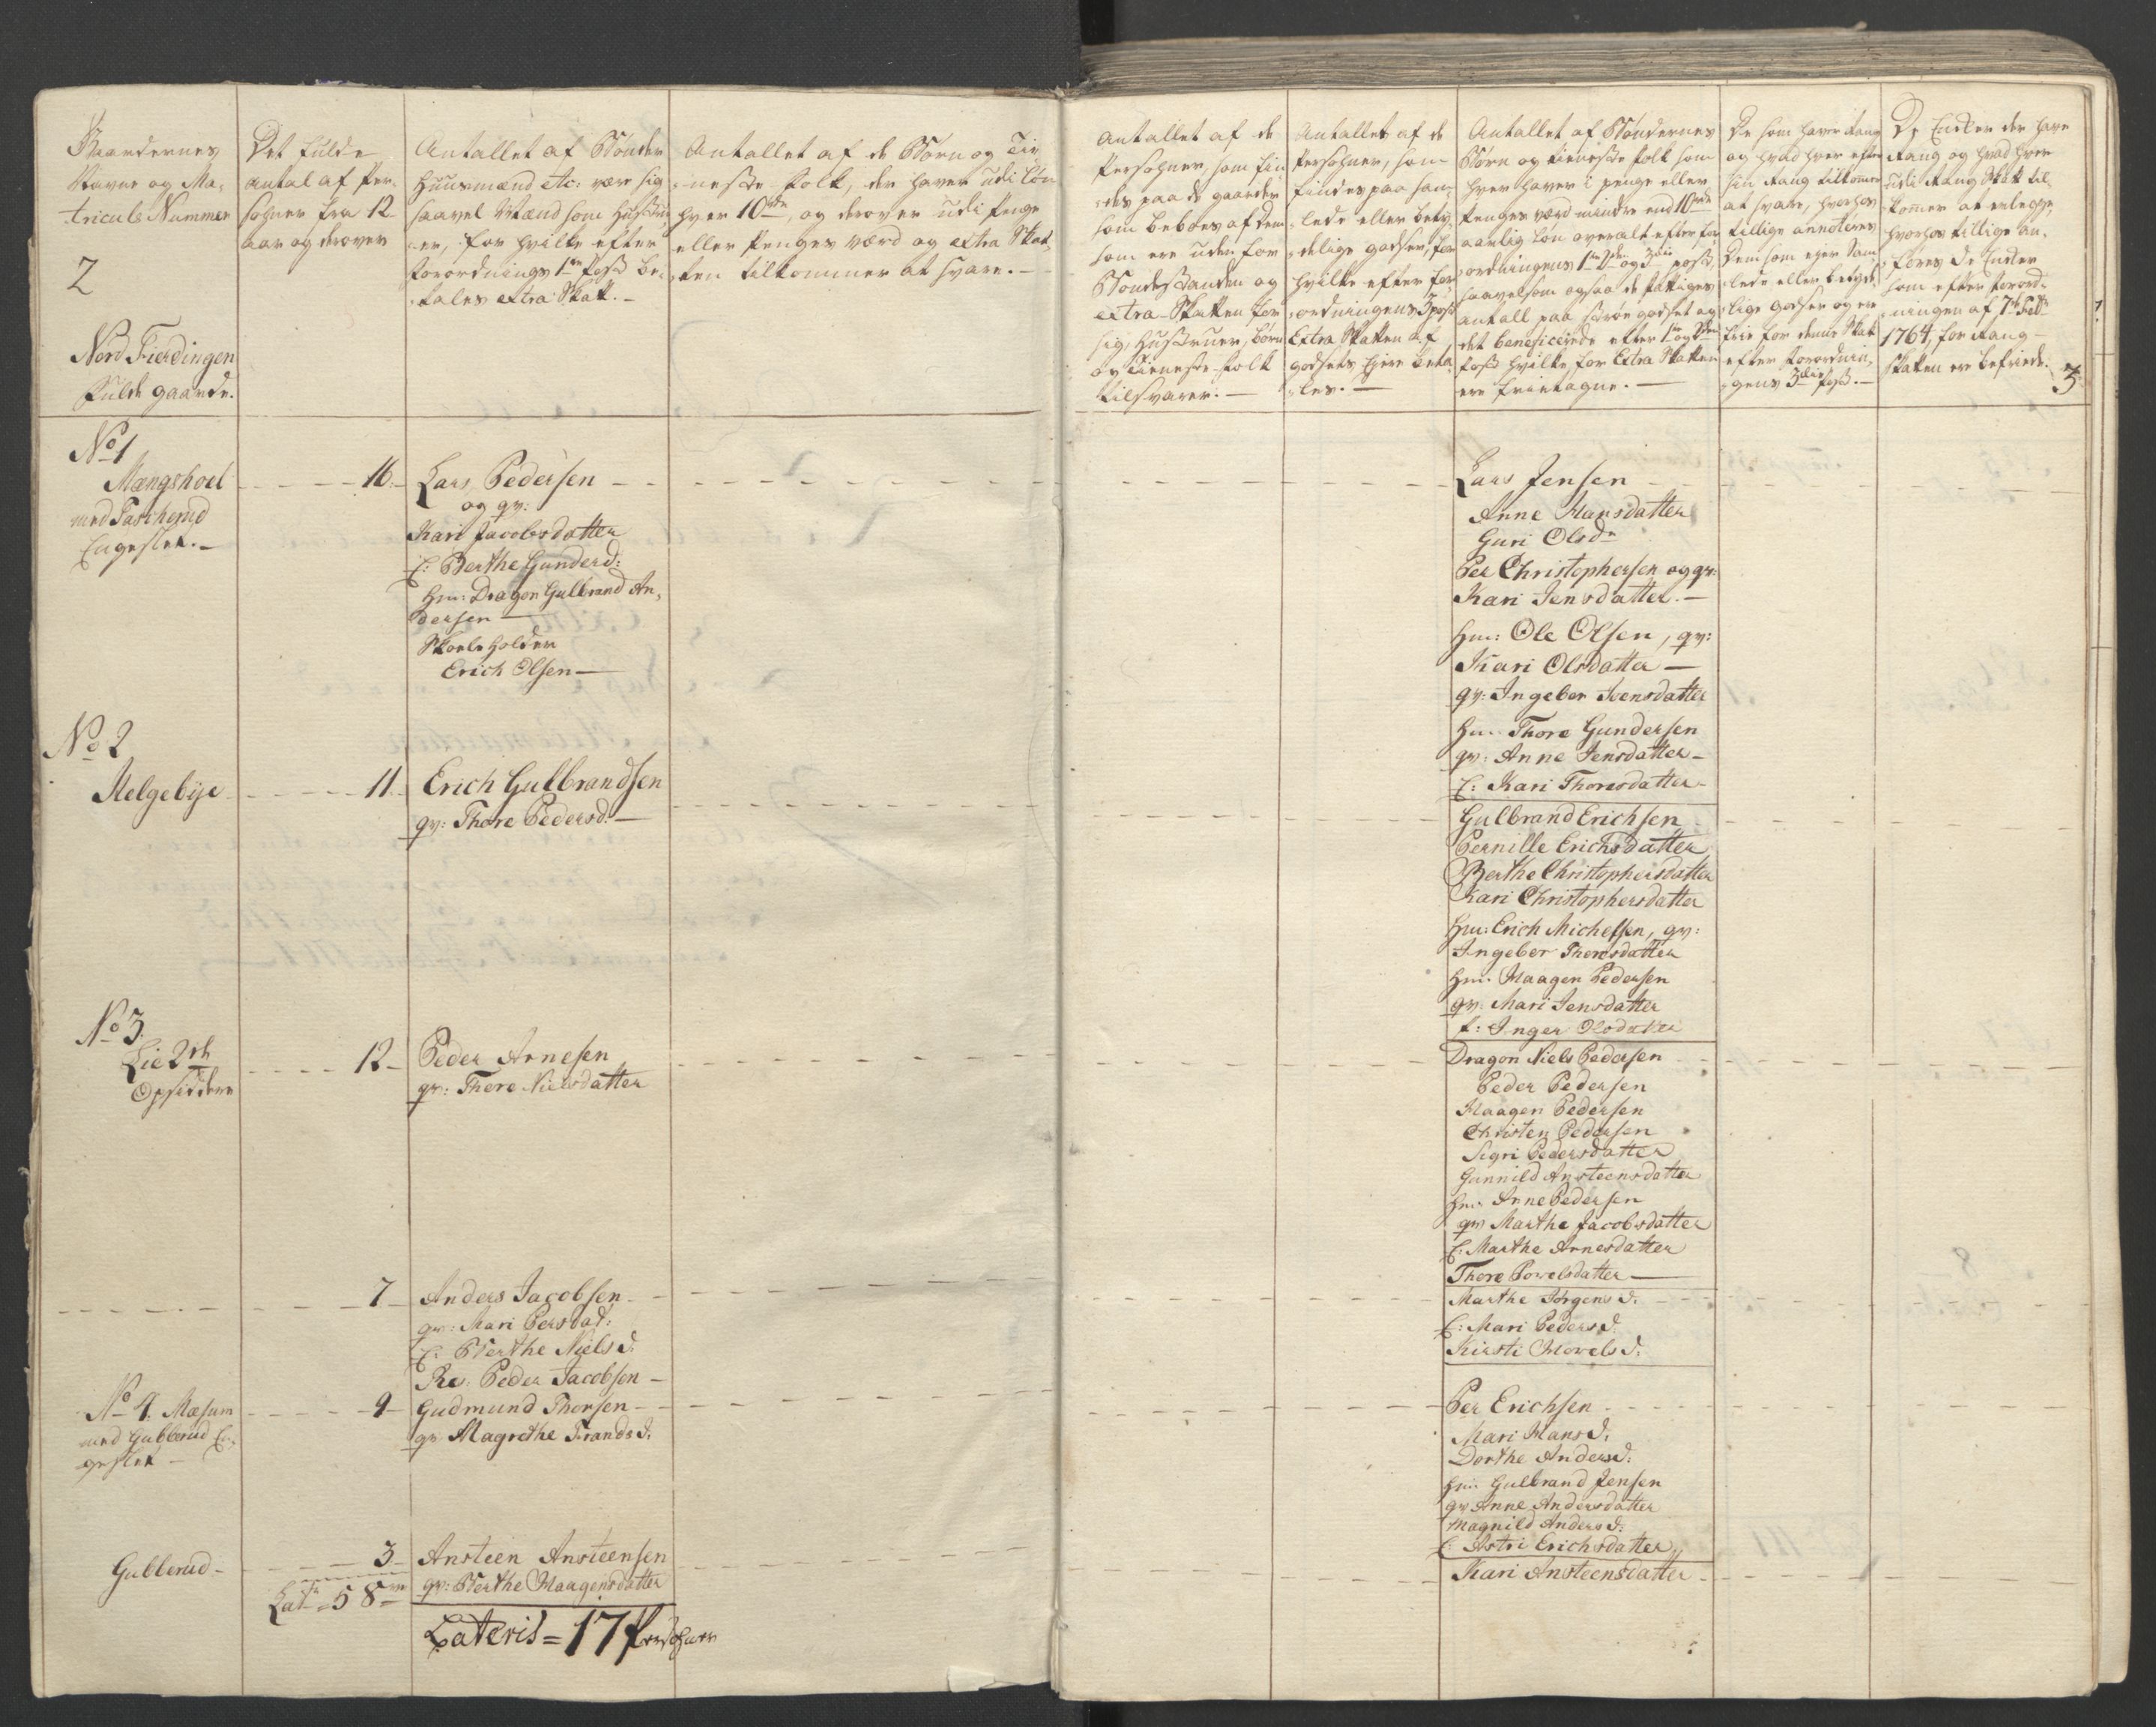 Gaardernes
Navne og Ma-
tricule Nummer
2
Nord Fierdingen
Fulde gaarde.
Det fulde
antal af Per-
sohner fra 12
aar og derover
Antallet af Bønder
Huusmænd etc: være sig
saavel Mænd som Hustru-
er, for hvilke efter
forordnings 1te Post be-
tales extra Skatt.
Antallet af de Børn og Tie-
neste folk, der haver udi Løn
hver 10rdr, og derover udi Penge
eller Penges værd og extra Skat-
ten tilkommer at svare.
Antallet af de
Persohner, som fin-
des paa de gaarder
som beboes af dem
som ere uden for
Bondestanden og
extra Skatten for
sig, Hustruer, børn
og Tieneste folk
tilsvarer.
Antallet af de
Persohner, som
findes paa sam-
lede eller bety-
delige godser, for
hvilke efter for-
ordningens 3 post
Extra Skatten af
godsets Ejere beta-
les.
Antallet af Bøndernes
Børn og tieneste folk som
hver haver i penge eller
Penges værd mindre end 10rdr
aarlig løn overalt efter for-
ordningens 1te 2den og 3die post,
saavelsom ogsaa de fattiges
antall paa strøe godset og
det beneficerede efter 1te og 2den
Post hvilke for Extra Skatten
ere frietagne.
De som haver Rang
og hvad hver efter
sin Rang tilkommer
at svare, hvorhos
tillige annoteres
Dem som ejer Sam-
lede eller betyde-
lige godser og ere
frie for denne Skat
efter forordnin-
gens 3die post.
De Enker der have
Rang og hvad hver
udi Rang Skatt til-
kommer at erlegge,
hvorhos tillige an-
føres de Enker
som efter forord-
ningen af 7de Febr
1764, for Rang
skatten ere befriede.
3
No 1
Mængshoel
med Taschrud
Engeslet.
16.
Lars Pedersen
og qv:
Kari Jacobsdatter
E: Berthe Gunders d:
Hm: Dragon Gulbrand An-
dersen
Skoeleholder
Erich Olsen
Lars Jensen
Anne Hansdatter
Guri Olsdr
Per Christophersen og qv:
Kari Jensdatter.
Hm: Ole Olsen, qv:
Kari Olsdatter
qv: Ingeber Svensdatter
Hm: Thore Gundersen
qv: Anne Jensdatter
E: Kari Thoresdatter
No 2
Helgebye
11.
Erich Gulbrandsen
qv: Thore Pedersd.
Gulbrand Erichsen
Pernille Erichsdatter
Berthe Christophersdatter
Kari Christophersdatter
Hm: Erich Michelsen, qv:
Ingeber Thoresdatter
Hm: Haagen Pedersen
qv: Mari Jensdatter
f: Inger Olsdatter
No 3.
Lie 2de
Opsiddere
12
Peder Arnesen
qv: Thore Nielsdatter
Dragon Niels Pedersen
Peder Pedersen
Haagen Pedersen
Christen Pedersen
Sigri Pedersdatter
Gunnild Ansteensdatter
Hm: Arne Pedersen
qv Marthe Jacobsdatter
E: Marthe Arnesdatter
Thore Powelsdatter
7.
Anders Jacobsen
qv: Mari Persdat:
E: Berthe Niels d.
Re. Peder Jacobsen
Marthe Jørgens d.
E: Mari Peders d.
Kirsti Powels d:
No 4: Mæsum
med Gublerud En-
geslet
9
Gudmund Thorsen
qv Magrethe Trands d.
Per Erichsen
Mari Hans d.
Dorthe Anders d:
Hm: Gulbrand Jensen
qv Anne Andersdatter
Magnild Anders d:
E: Astri Erichsdatter
Gublerud
3
Ansteen Ansteensen
qv: Berthe Haagensdatter
Kari Ansteensdatter
Lat = 58
Lateris = 17 Persohner